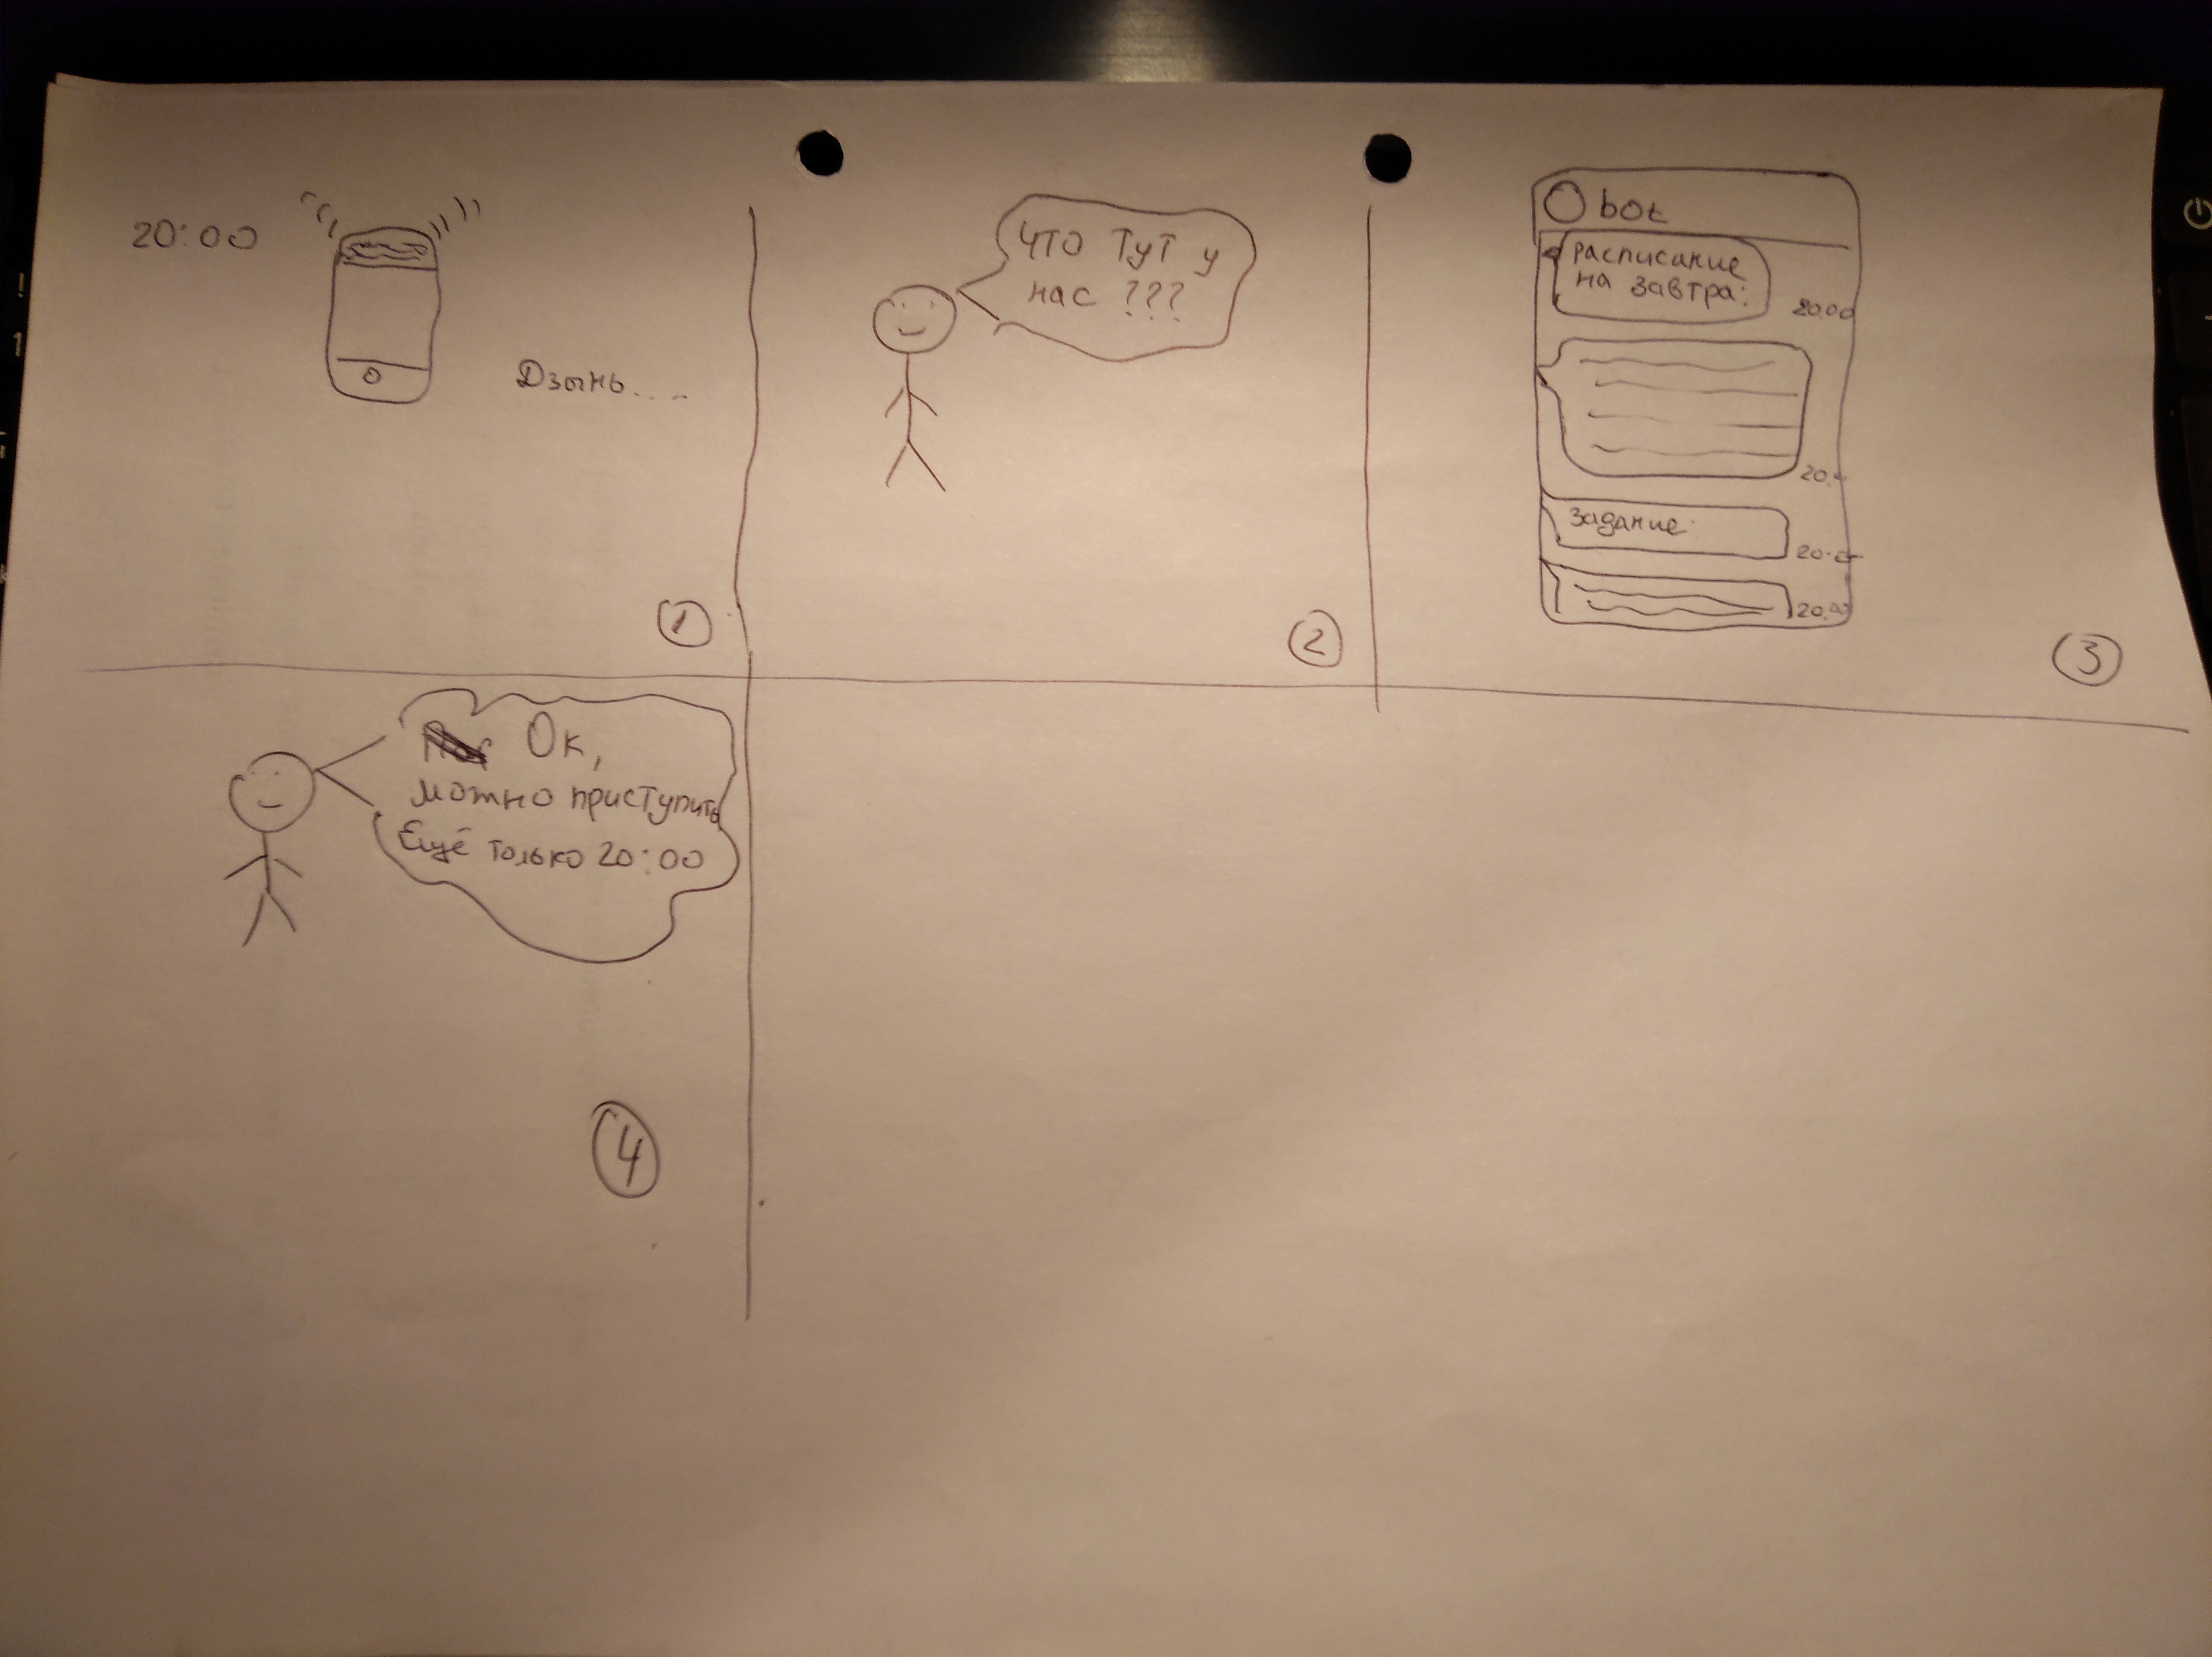 20:00
Дзынь....
1
Что тут у
нас ???
2
bot
Расписание
на завтра:
20.00
20.
Задание:
20.
20.00
3
Ок,
можно приступить
Ещё только 20:00
4